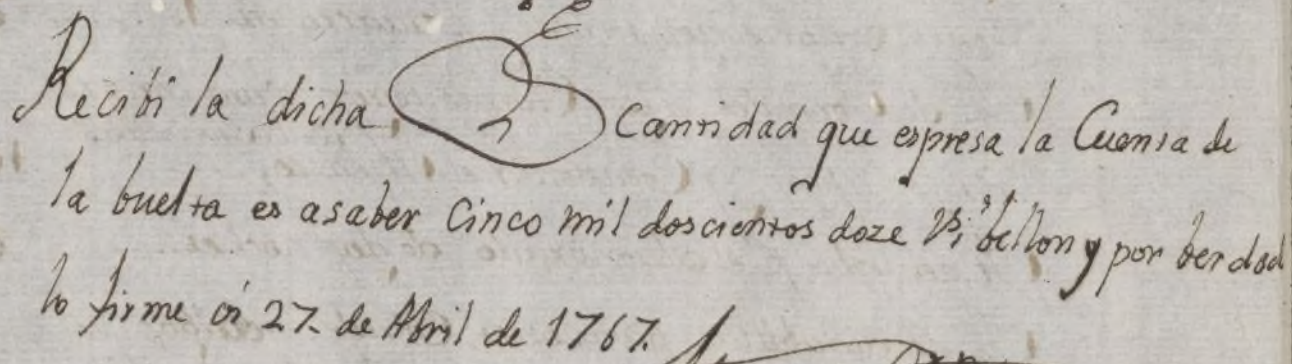 Recibi la dicha Cantidad que espresa la Cuenta de
la buelta es asaber Cinco mil doscientos doze Rs bellon y por berdad
lo firme oi 27 de Abril de 1767.